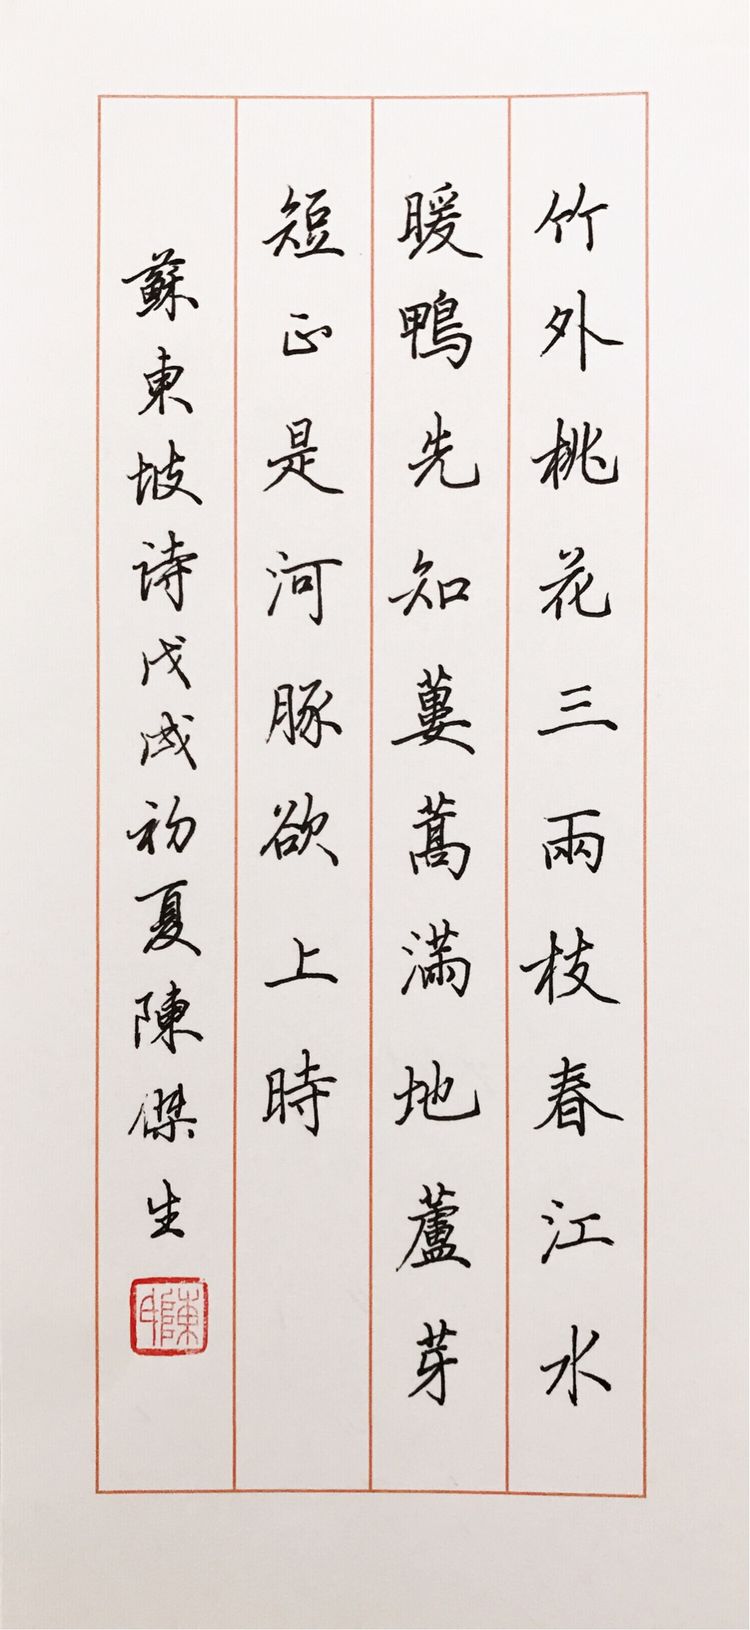 竹外桃花三兩枝春江水
暖鴨先知蔞蒿滿地蘆芽
短正是河豚欲上時
蘇東坡詩戊戌初夏陳傑生